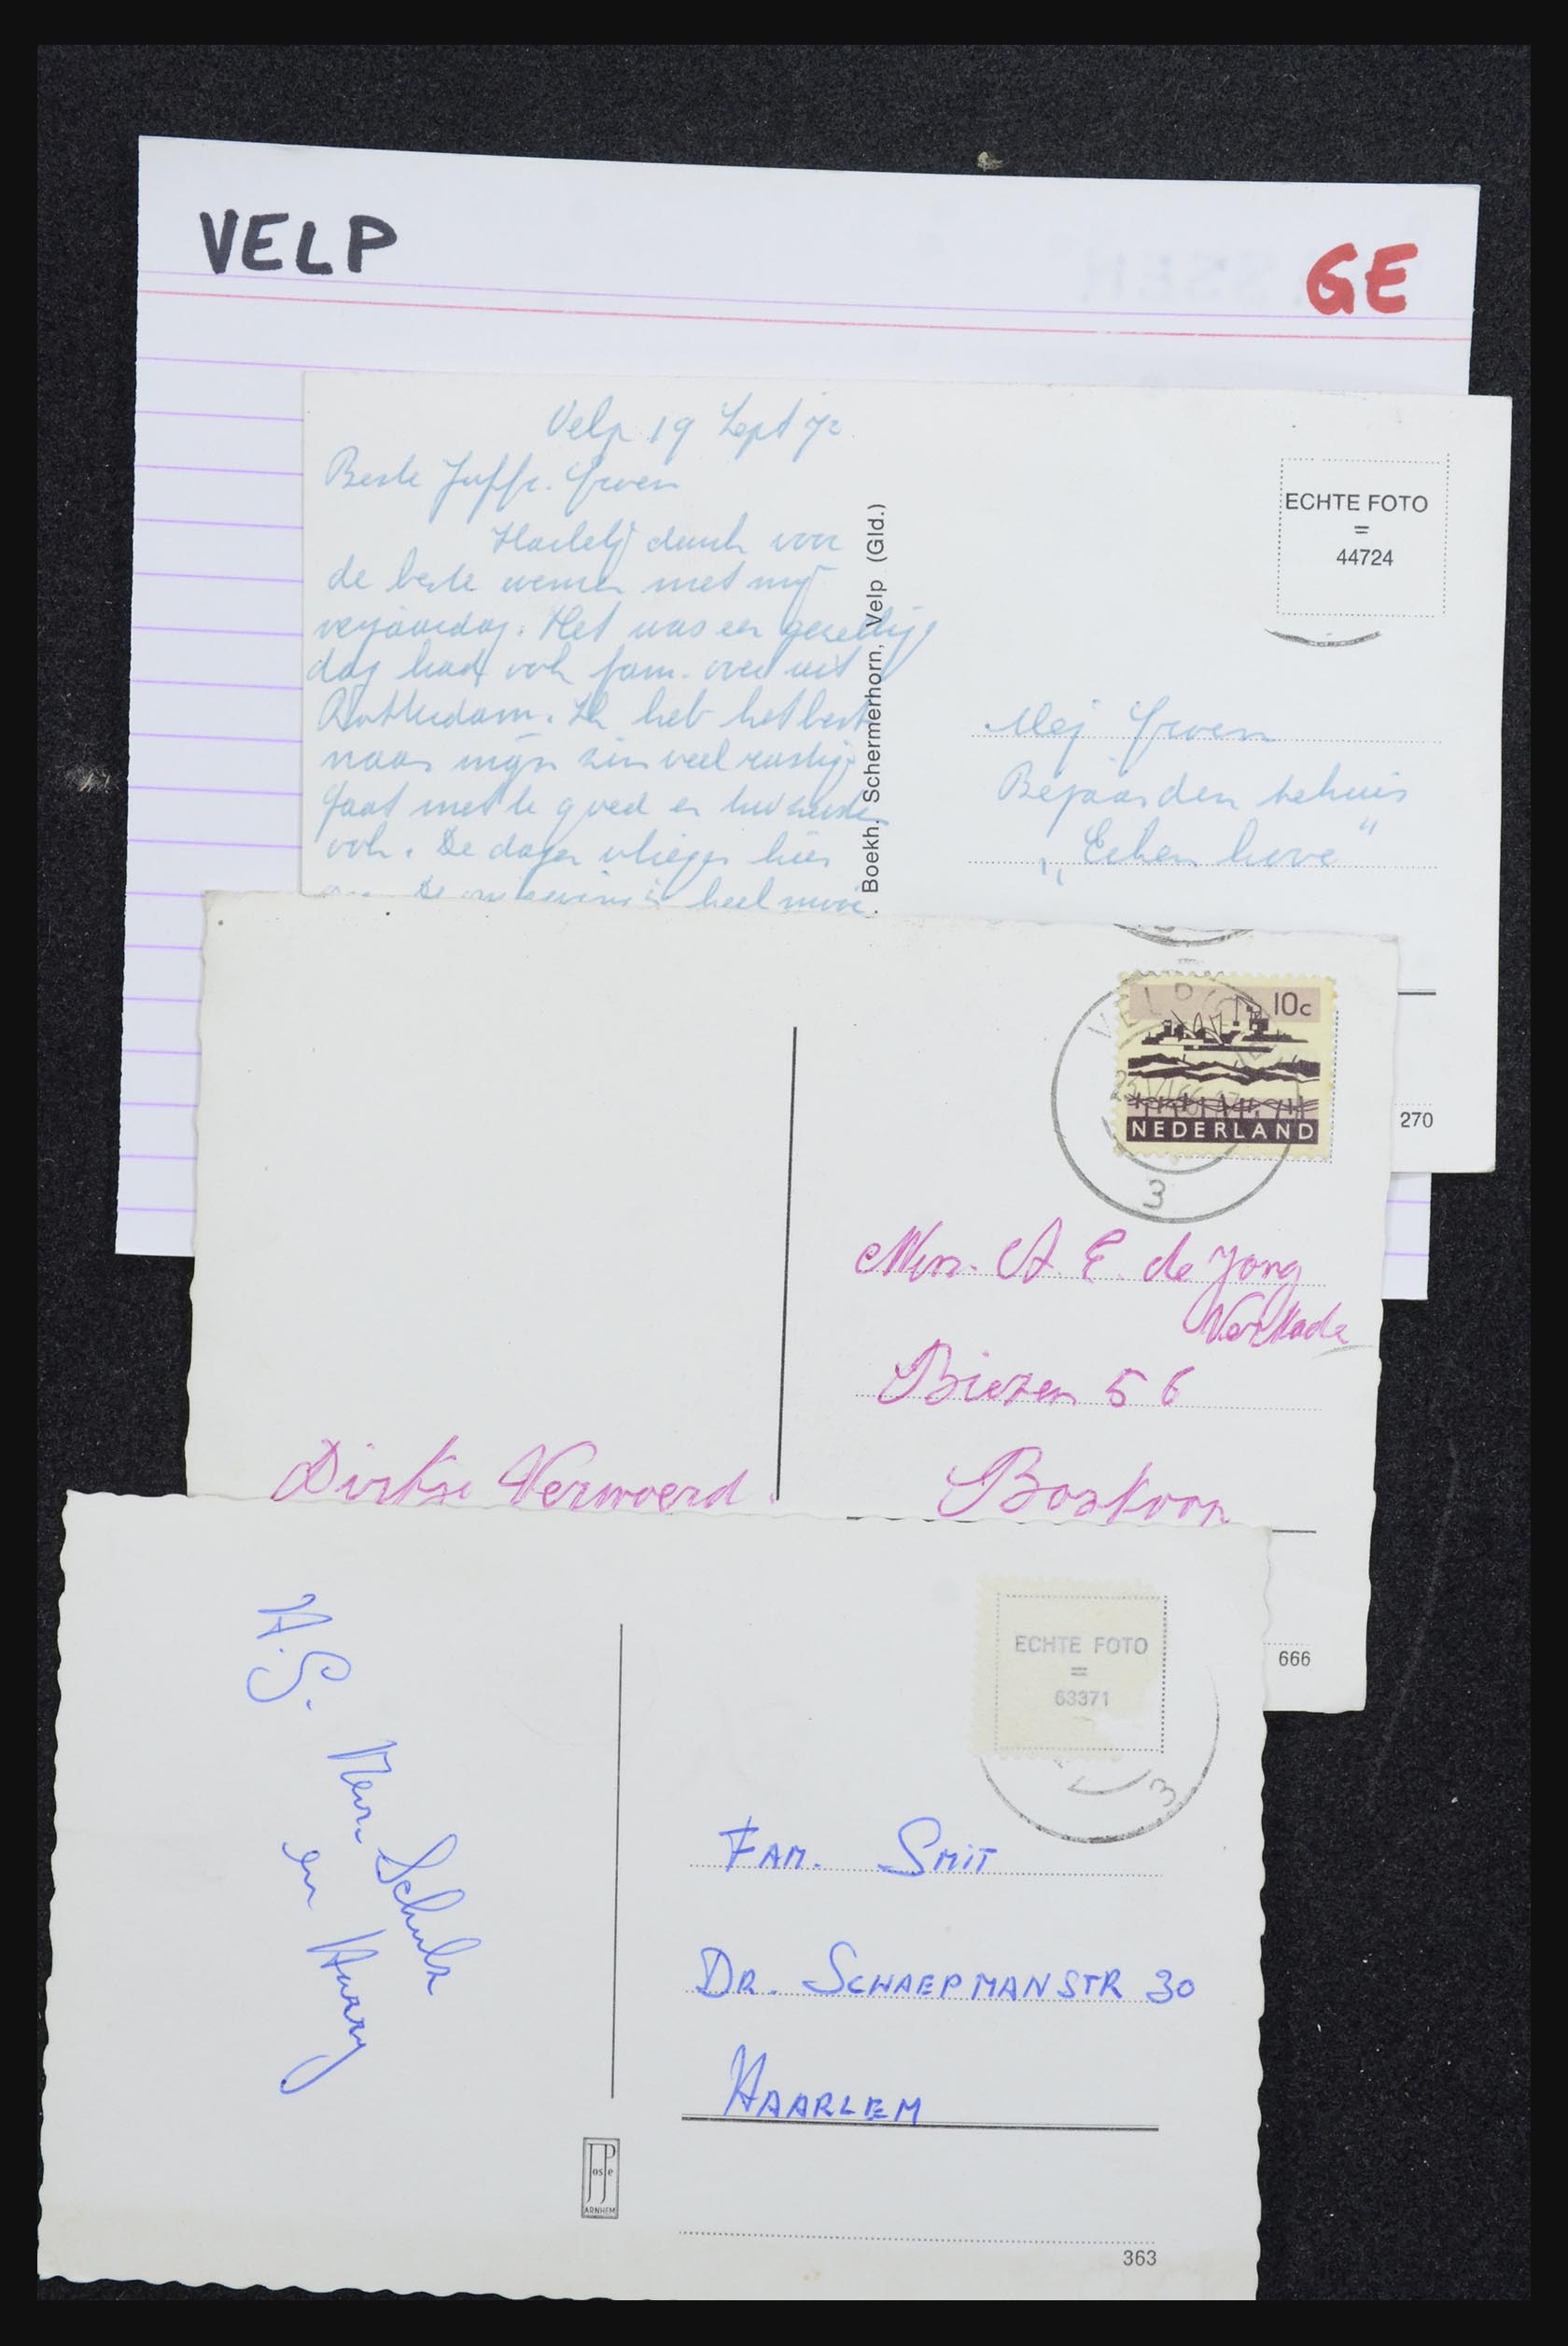 VELP
GE
Velp 19 Sept 72
Beste Juffr. Groen
Hartelijk dank voor
de beste wensen met mijn
verjaardag. Het was een gezellige
dag had ook fam. over uit
Rotterdam. Ik heb het best
naar mijn zin veel rustig
gaat met te goed en
ook. De dagen vliegen hier
De omgeving is heel mooi.
Boekh. Schermerhorn, Velp (Gld.)
ECHTE FOTO
=
44724
Mej Groen
Bejaarden tehuis
„Eikenhove"
270
VELP
10c
NEDERLAND
3
Mevr. A. E. de Jong
Verkade
Biezen 56
Boskoop
Dirkse Verwoerd.
666
H.G. Mevr. Schulz
en Harry
ECHTE FOTO
=
63371
3
FAM. SMIT
DR. SCHAEPMANSTR 30
HAARLEM
JosPé
ARNHEM
363